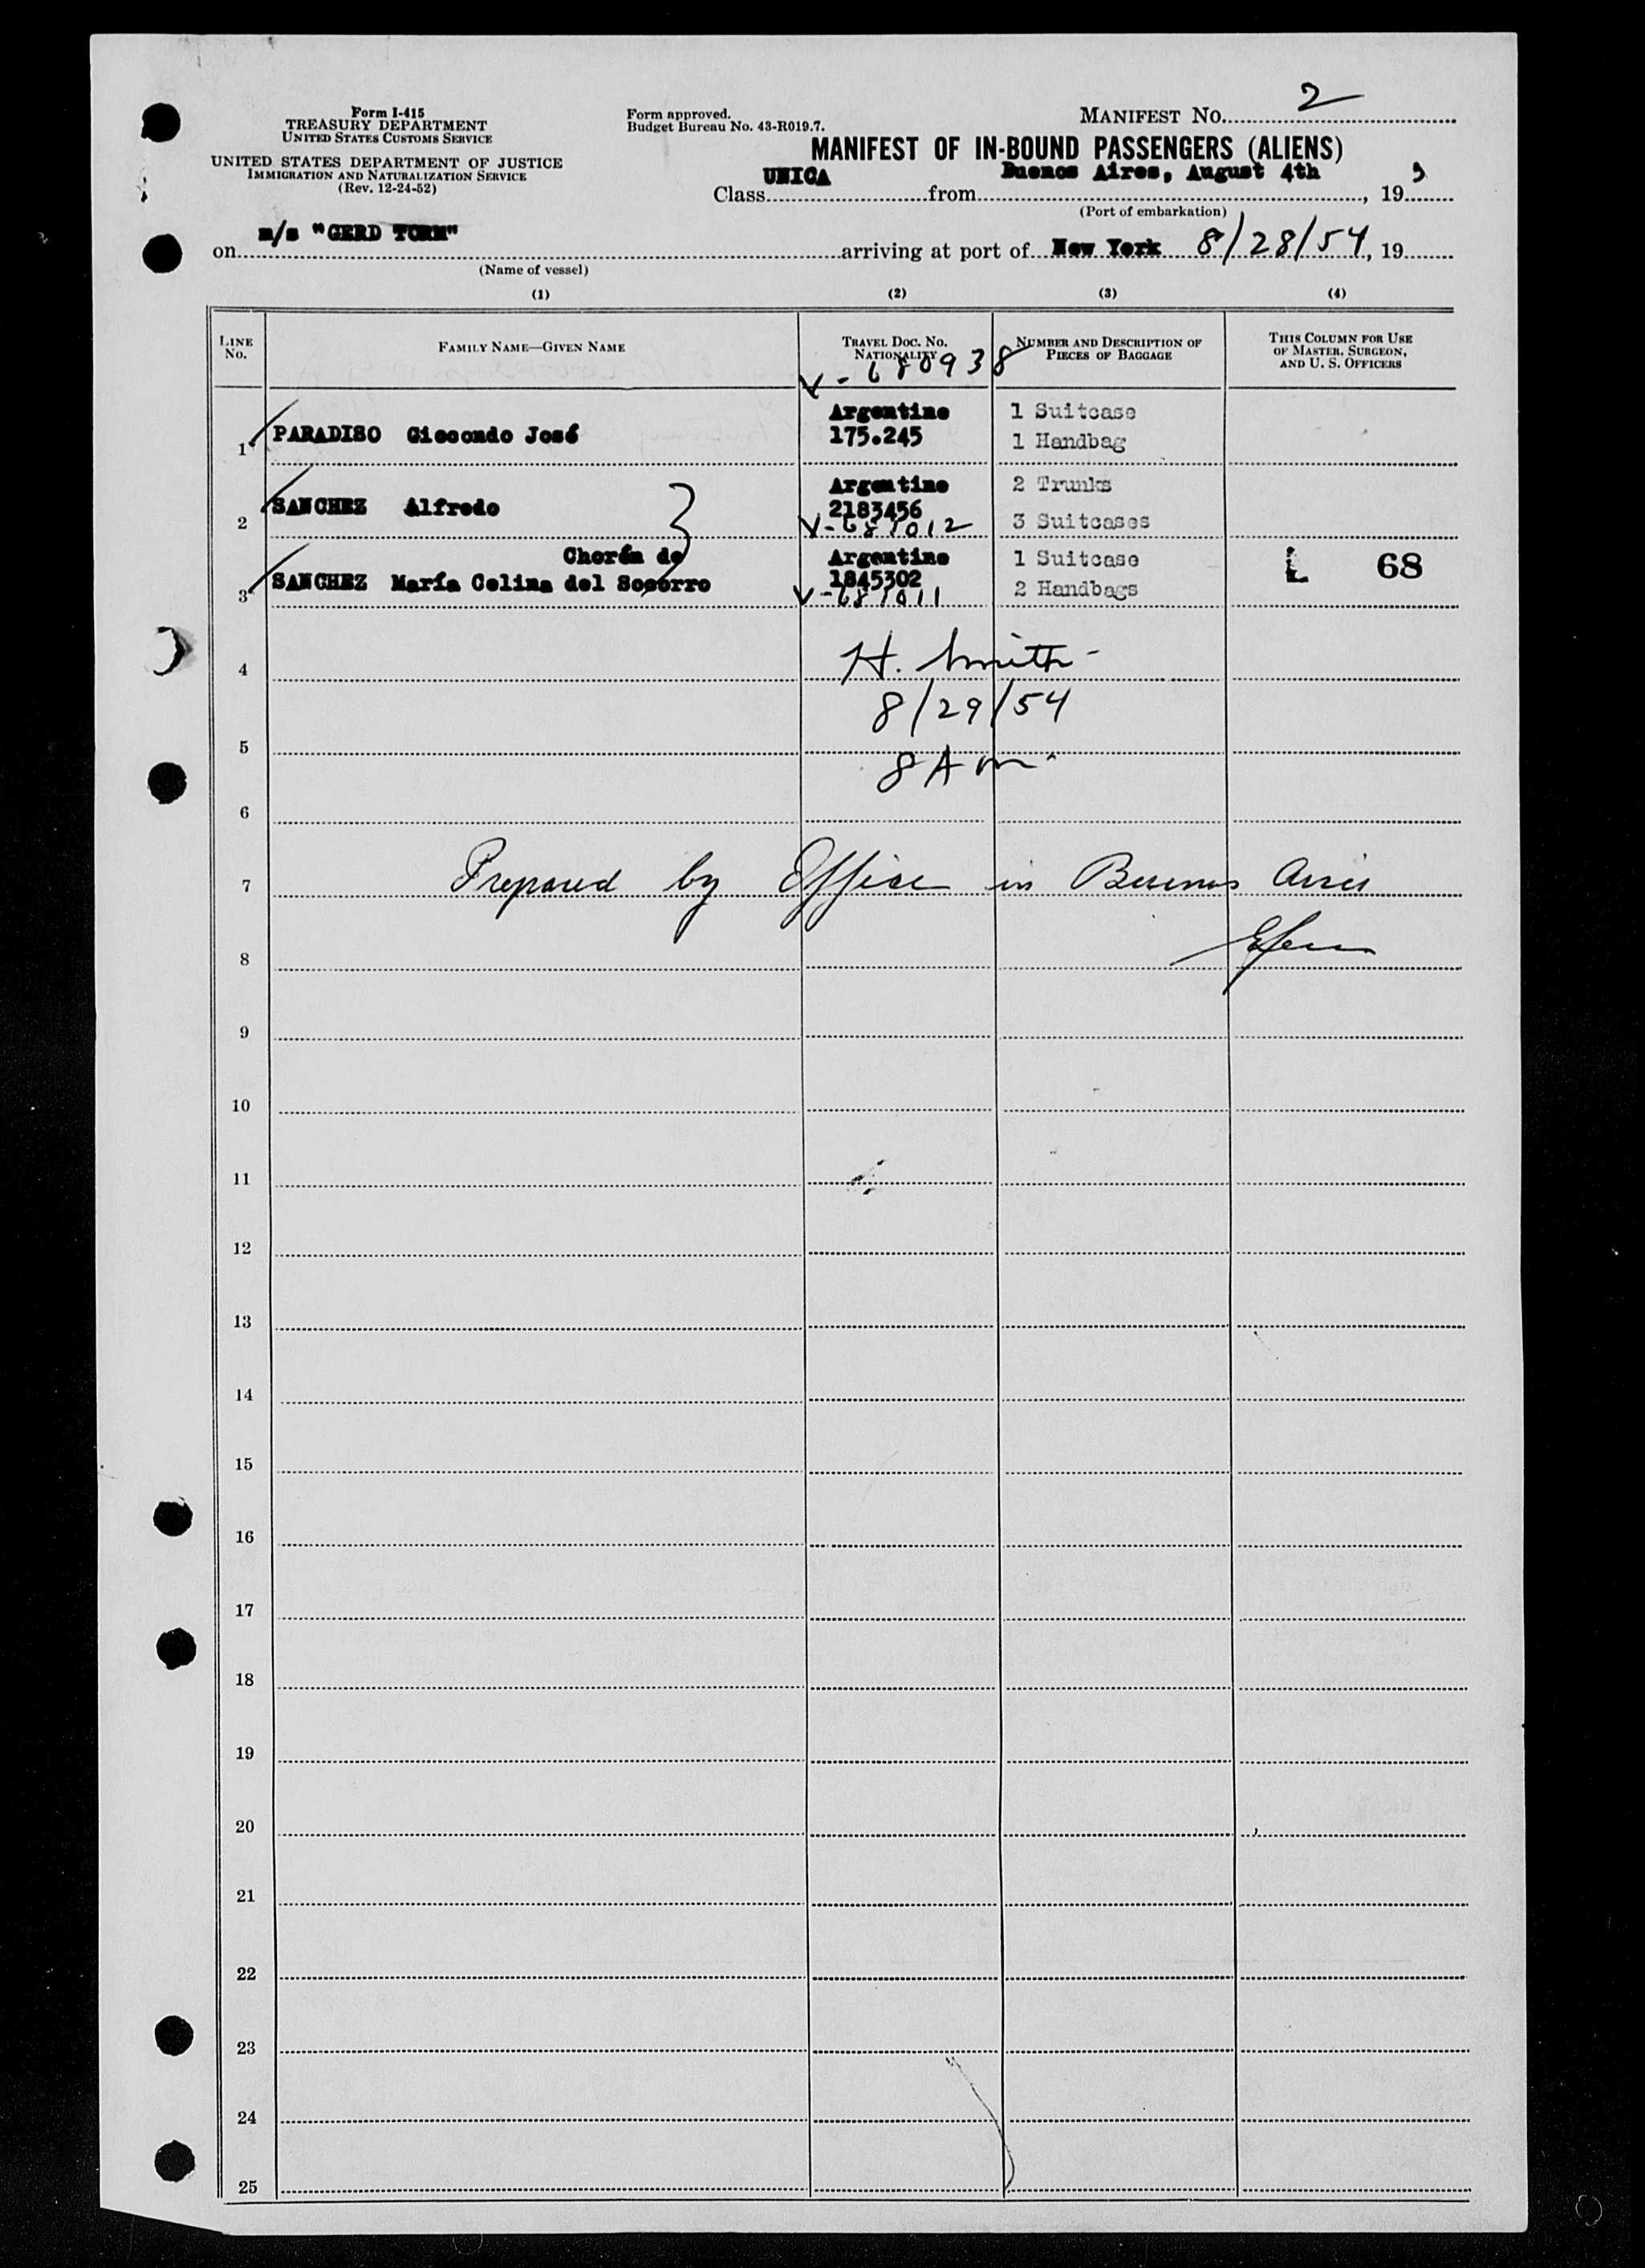 Form I-415
TREASURY DEPARTMENT
UNITED STATES CUSTOMS SERVICE
UNITED STATES DEPARTMENT OF JUSTICE
IMMIGRATION AND NATURALIZATION SERVICE
(Rev. 12-24-52)
Form approved.
Budget Bureau No. 43-R019.7.
MANIFEST NO. 2
MANIFEST OF IN-BOUND PASSENGERS (ALIENS)
Class UNICA from Buenos Aires, August 4th, 19
(Port of embarkation)
on m/s "GERD TORM" arriving at port of New York 8/28/54, 19
(Name of vessel)
(1) (2) (3) (4)
LINE NO.
FAMILY NAME—GIVEN NAME
TRAVEL DOC. NO. NATIONALITY
NUMBER AND DESCRIPTION OF PIECES OF BAGGAGE
THIS COLUMN FOR USE OF MASTER, SURGEON, AND U. S. OFFICERS
V-680938
Argentine 1 Suitcase
1 PARADISO Giocondo José 175.245 1 Handbag
Argentine 2 Trunks
2 SANCHEZ Alfredo 2183456 3 Suitcases
V-681012
Chorén de Argentine 1 Suitcase L 68
3 SANCHEZ María Celina del Socorro 1845302 2 Handbags
V-681011
4 H. Smith
8/29/54
5
8 Am.
6
7 Prepared by Office in Buenos Aires
8
9
10
11
12
13
14
15
16
17
18
19
20
21
22
23
24
25